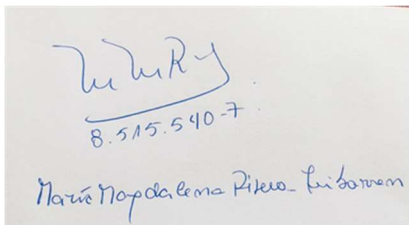 8.515.540-7
María Magdalena Risero-Iribarren